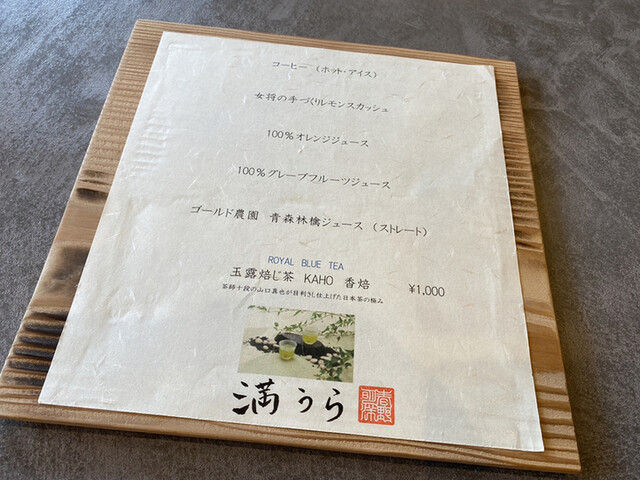 コーヒー（ホット・アイス）
女将の手づくりレモンスカッシュ
100％オレンジジュース
100％グレープフルーツジュース
ゴールド農園　青森林檎ジュース（ストレート）
ROYAL BLUE TEA
玉露焙じ茶　KAHO　香焙　¥1,000
茶師十段の山口真也が目利きし仕上げた日本茶の極み
満うら